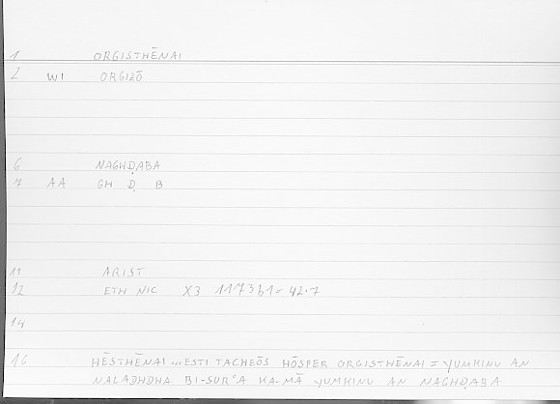 1 ORGISTHĒNAI
2 WI ORGIZŌ
6 NAGHḌABA
7 AA GH Ḍ B
11 ARIST
12 ETH NIC X3 1173b1 = 42.7
14
16 HĒSTHĒNAI ... ESTI TACHEŌS HŌSPER ORGISTHĒNAI = YUMKINU AN
NALADHDHA BI-SURʿA KA-MĀ YUMKINU AN NAGHḌABA